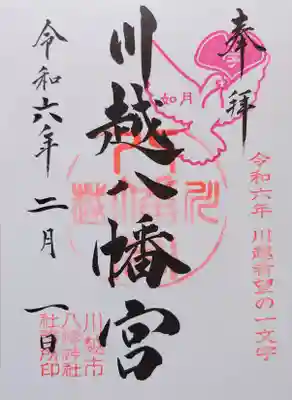 奉拝
如月
令和六年 川越希望の一文字
川越八幡宮
令和六年 二月 一日
川越市
八幡神社
社務所印